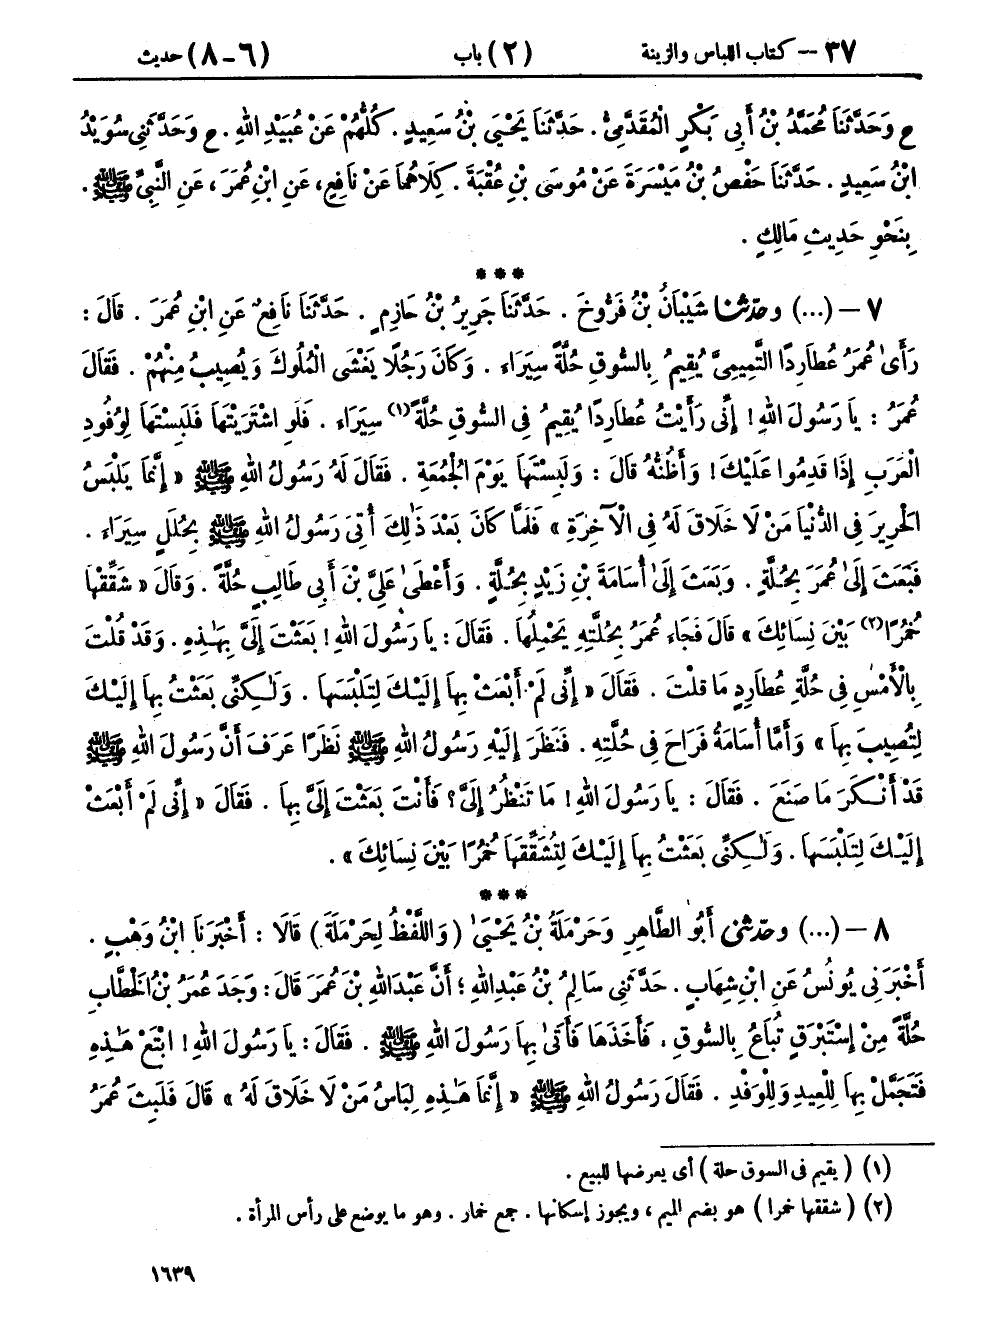 ٣٧ – كتاب اللباس والزينة (٢) باب (٦-٨) حديث
ح وَحَدَّثَنَا مُحَمَّدُ بْنُ أَبِي بَكْرٍ الْمُقَدَّمِيُّ. حَدَّثَنَا يَحْيَى بْنُ سَعِيدٍ. كُلُّهُمْ عَنْ عُبَيْدِ اللهِ. ح وَحَدَّثَنِي سُوَيْدُ
ابْنُ سَعِيدٍ. حَدَّثَنَا حَفْصُ بْنُ مَيْسَرَةَ عَنْ مُوسَى بْنِ عُقْبَةَ. كِلَاهُمَا عَنْ نَافِعٍ، عَنِ ابْنِ عُمَرَ، عَنِ النَّبِيِّ ﷺ.
بِنَحْوِ حَدِيثِ مَالِكٍ.
***
٧ – (...) وحدّثنا شَيْبَانُ بْنُ فَرُّوخَ. حَدَّثَنَا جَرِيرُ بْنُ حَازِمٍ. حَدَّثَنَا نَافِعٌ عَنِ ابْنِ عُمَرَ. قَالَ:
رَأَىٰ عُمَرُ عُطَارِدًا التَّمِيمِيَّ يُقِيمُ بِالسُّوقِ حُلَّةً سِيَرَاءَ. وَكَانَ رَجُلًا يَغْشَى الْمُلُوكَ وَيُصِيبُ مِنْهُمْ. فَقَالَ
عُمَرُ: يَا رَسُولَ اللهِ! إِنِّي رَأَيْتُ عُطَارِدًا يُقِيمُ فِي السُّوقِ حُلَّةً (١) سِيَرَاءَ. فَلَوِ اشْتَرَيْتَهَا فَلَبِسْتَهَا لِوُفُودِ
الْعَرَبِ إِذَا قَدِمُوا عَلَيْكَ! وَأَظُنُّهُ قَالَ: وَلَبِسْتَهَا يَوْمَ الْجُمُعَةِ. فَقَالَ لَهُ رَسُولُ اللهِ ﷺ «إِنَّمَا يَلْبَسُ
الْحَرِيرَ فِي الدُّنْيَا مَنْ لَا خَلَاقَ لَهُ فِي الْآخِرَةِ» فَلَمَّا كَانَ بَعْدَ ذَٰلِكَ أُتِيَ رَسُولُ اللهِ ﷺ بِحُلَلٍ سِيَرَاءَ.
فَبَعَثَ إِلَىٰ عُمَرَ بِحُلَّةٍ. وَبَعَثَ إِلَىٰ أُسَامَةَ بْنِ زَيْدٍ بِحُلَّةٍ. وَأَعْطَىٰ عَلِيَّ بْنَ أَبِي طَالِبٍ حُلَّةً. وَقَالَ «شَقِّقْهَا
خُمُرًا (٢) بَيْنَ نِسَائِكَ» قَالَ فَجَاءَ عُمَرُ بِحُلَّتِهِ يَحْمِلُهَا. فَقَالَ: يَا رَسُولَ اللهِ! بَعَثْتَ إِلَيَّ بِهَـٰذِهِ. وَقَدْ قُلْتَ
بِالْأَمْسِ فِي حُلَّةِ عُطَارِدٍ مَا قُلْتَ. فَقَالَ «إِنِّي لَمْ أَبْعَثْ بِهَا إِلَيْكَ لِتَلْبَسَهَا. وَلَـٰكِنِّي بَعَثْتُ بِهَا إِلَيْكَ
لِتُصِيبَ بِهَا» وَأَمَّا أُسَامَةُ فَرَاحَ فِي حُلَّتِهِ. فَنَظَرَ إِلَيْهِ رَسُولُ اللهِ ﷺ نَظَرًا عَرَفَ أَنَّ رَسُولَ اللهِ ﷺ
قَدْ أَنْكَرَ مَا صَنَعَ. فَقَالَ: يَا رَسُولَ اللهِ! مَا تَنْظُرُ إِلَيَّ؟ فَأَنْتَ بَعَثْتَ إِلَيَّ بِهَا. فَقَالَ «إِنِّي لَمْ أَبْعَثْ
إِلَيْكَ لِتَلْبَسَهَا. وَلَـٰكِنِّي بَعَثْتُ بِهَا إِلَيْكَ لِتُشَقِّقَهَا خُمُرًا بَيْنَ نِسَائِكَ».
***
٨ – (...) وحدّثني أَبُو الطَّاهِرِ وَحَرْمَلَةُ بْنُ يَحْيَىٰ (وَاللَّفْظُ لِحَرْمَلَةَ) قَالَا: أَخْبَرَنَا ابْنُ وَهْبٍ.
أَخْبَرَنِي يُونُسُ عَنِ ابْنِ شِهَابٍ. حَدَّثَنِي سَالِمُ بْنُ عَبْدِ اللهِ؛ أَنَّ عَبْدَ اللهِ بْنَ عُمَرَ قَالَ: وَجَدَ عُمَرُ بْنُ الْخَطَّابِ
حُلَّةً مِنْ إِسْتَبْرَقٍ تُبَاعُ بِالسُّوقِ. فَأَخَذَهَا فَأَتَىٰ بِهَا رَسُولَ اللهِ ﷺ. فَقَالَ: يَا رَسُولَ اللهِ! ابْتَعْ هَـٰذِهِ
فَتَجَمَّلْ بِهَا لِلْعِيدِ وَلِلْوَفْدِ. فَقَالَ رَسُولُ اللهِ ﷺ «إِنَّمَا هَـٰذِهِ لِبَاسُ مَنْ لَا خَلَاقَ لَهُ» قَالَ فَلَبِثَ عُمَرُ
(١) (يقيم فى السوق حلة) أى يعرضها للبيع.
(٢) (شققها خمرا) هو بضم الميم، ويجوز إسكانها. جمع خمار. وهو ما يوضع على رأس المرأة.
١٦٣٩